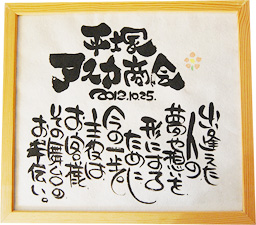 平塚
アスカ商会
2012.10.25.
出逢えた
人の
夢や想いを
形にする
ために
今の一歩。
主役は
お客様
その舞台の
お手伝い。